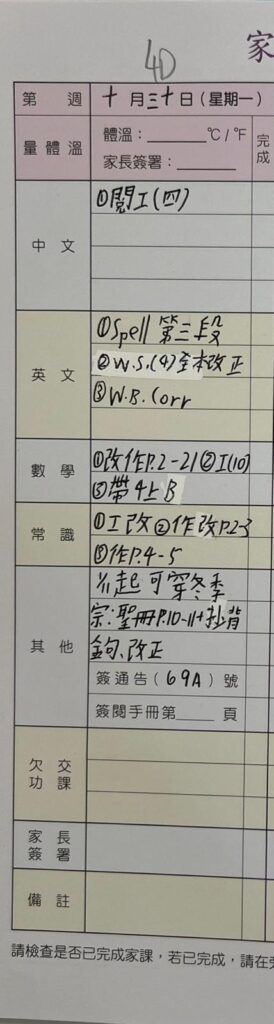 40
家
第 週 十月三十日(星期一)
量體溫 體溫：______℃/℉ 完成
家長簽署：______
中文 ①閱工(四)
英文 ①Spell 第三段
②W.S.(4)至本改正
③W.B. Corr
數學 ①改作P.2-21②工(10)
③帶4上B
常識 ①工改②作改P.2-3
③作P.4-5
其他 ⅟₁₁起可穿冬季
宗.聖冊P.10-11+抄背
鈎.改正
簽通告(69A)號
簽閱手冊第____頁
欠交功課
家長簽署
備註
請檢查是否已完成家課，若已完成，請在